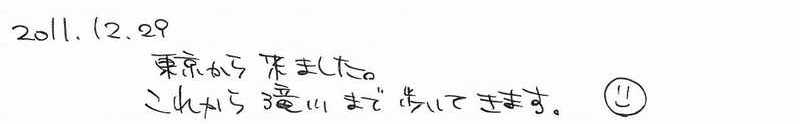 2011.12.29
東京から来ました。
これから滝川まで歩いてきます。